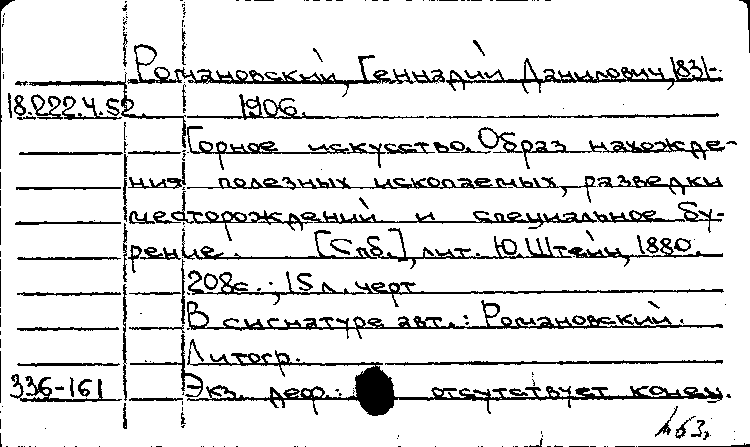 Романовский, Геннадий Данилович, 1831-
18.222.4.52. 1906.
Горное искусство. Образ нахожде-
ния полезных ископаемых, разведки
месторождений и специальное бу-
рение. [Спб.], лит. Ю. Штейн, 1880.
208с.; 15 л. черт.
В сигнатуре авт.: Романовский.
Литогр.
336-161 Экз. деф.: отсутствует конец.